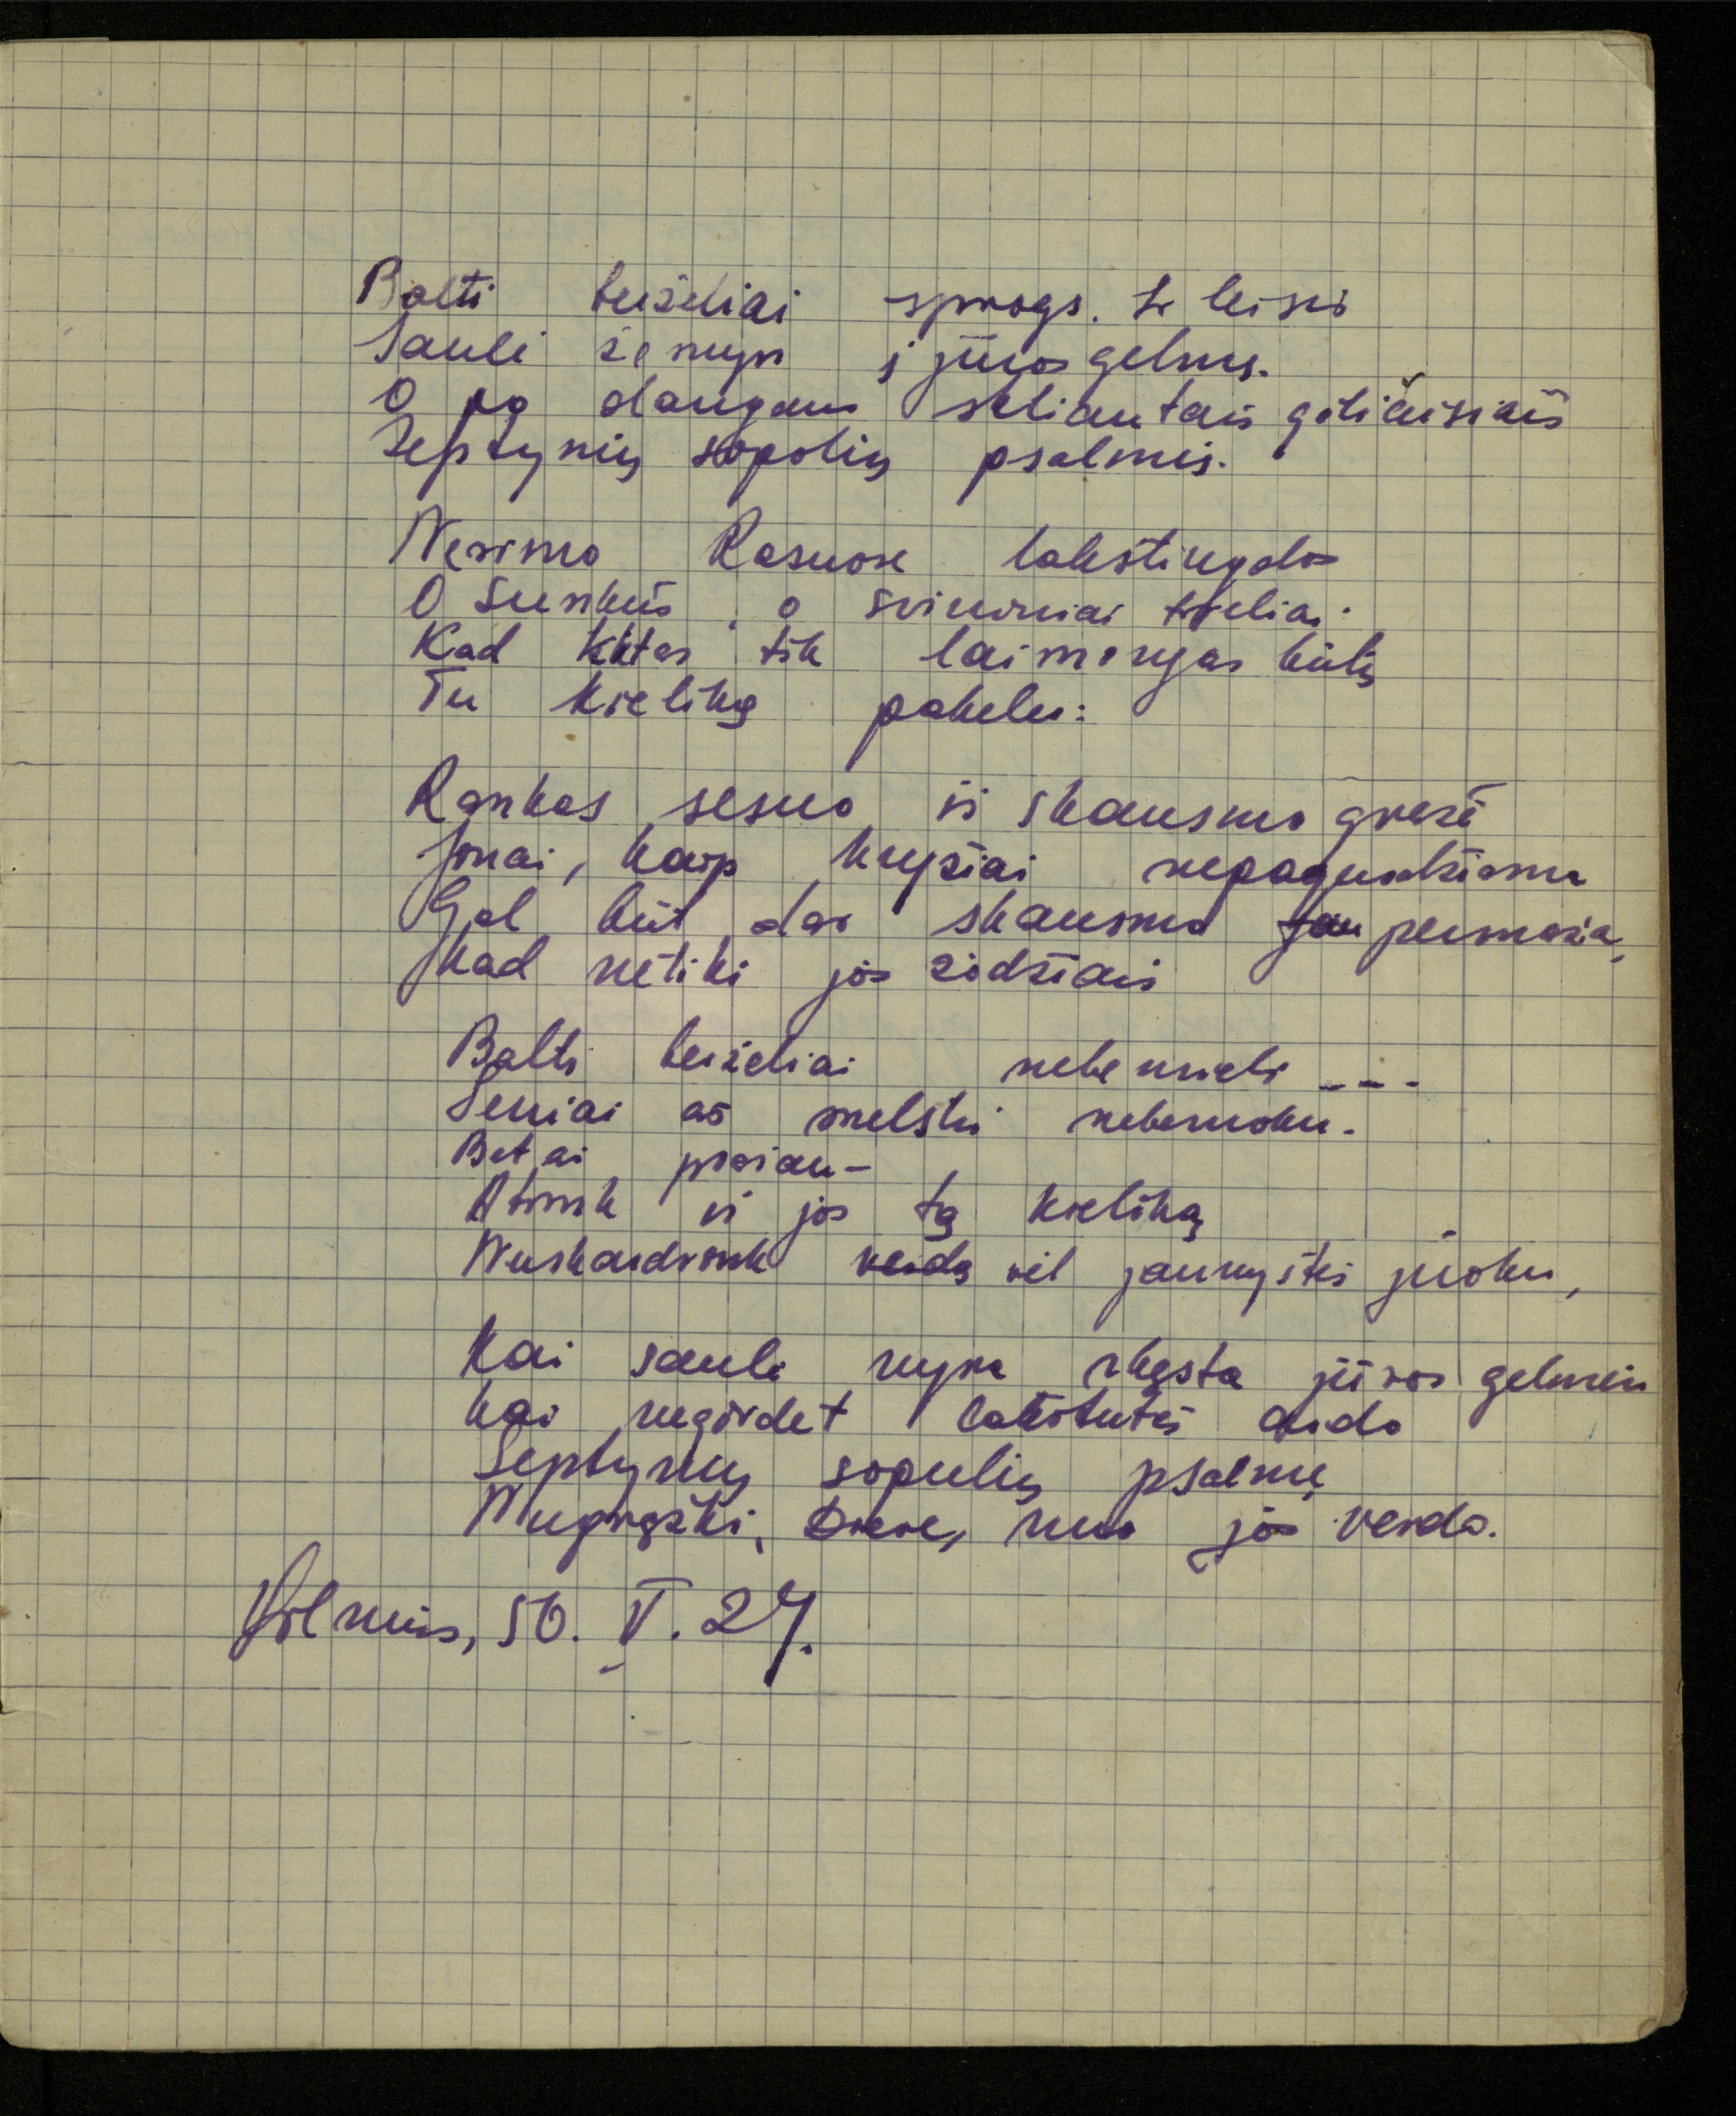 Balti berželiai sprogo. Ir leisis
Saulė žemyn į jūros gelmę.
O po dangaus skliautais giliaisiais
Septynių sopolių psalmės.
Nerimo Rasuose lakštingalos
O sunkūs, o švininiai toliai.
Kad kitas tik laimingas būtų
Tu kieliką pakėlei:
Rankas sesuo iš skausmo gręžė
Jonai, kaip kryžiai nepagundžiama
Gal būt dar skausmo jau permažia,
kad netiki jos žodžiais
Balti berželiai nebemieli ---
Seniai aš melstis nebemoku.
Bet ai prašau –
Atimk iš jos tą kieliką
Nuskaidrink veidą vėl jaunystės juoku,
Kai saulė nyra skęsta jūros gelmėn
kai negirdėt lakštutės aido
Septynių sopulių psalmę
Nugręžki, Dieve, nuo jos veido.
Vilnius, 56. V. 27.